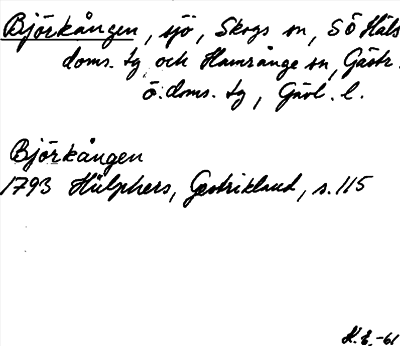 Björkången, sjö, Skogs sn, SÖ Häls.
doms. tg och Hamrånge sn, Gästr.
ö. doms. tg, Gävl. l.
Björkången
1793 Hülphers, Gestrikland, s. 115
H.E. -61